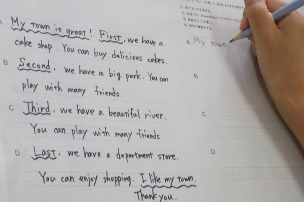 A My town is great! First, we have a
cake shop. You can buy delicious cakes.
B Second, we have a big park. You can
play with many friends.
C Third, we have a beautiful river.
You can play with many friends
D Last, we have a department store.
You can enjoy shopping. I like my town.
Thank you.
A My town
B
C
D